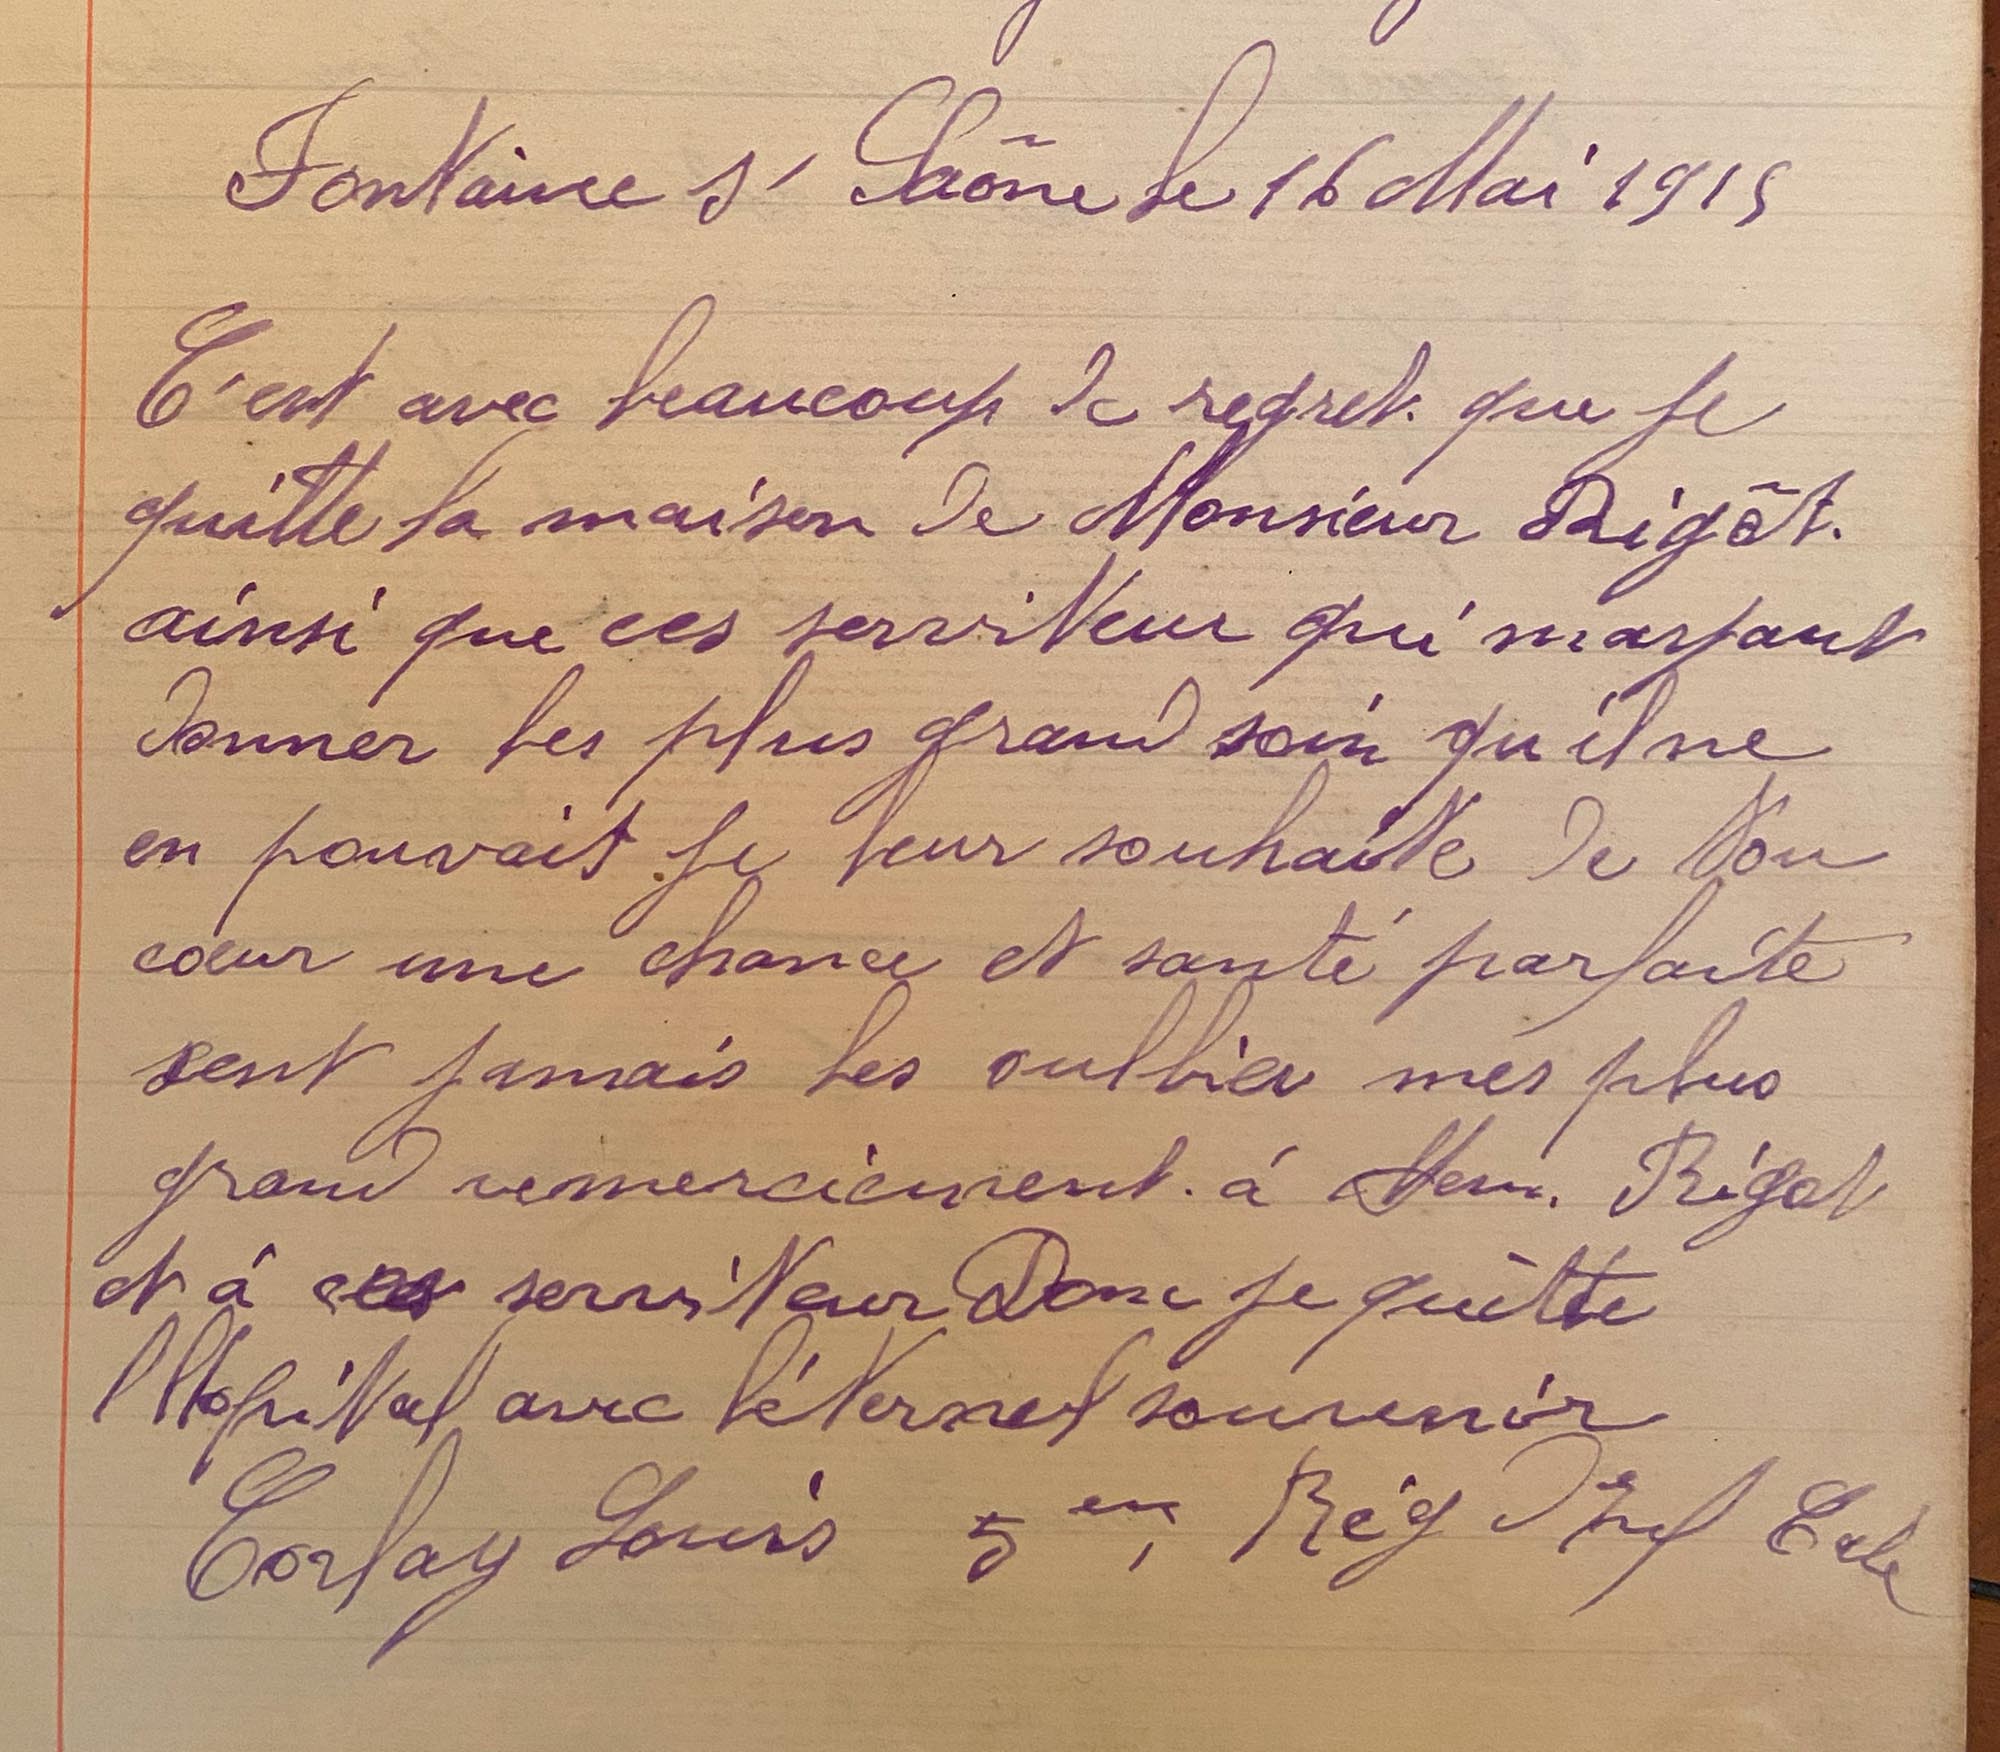 Fontaine s' Saône le 16 Mai 1915
C'est avec beaucoup de regret. que je
quitte la maison de Monsieur Rigôt.
ainsi que ces serviteur qui marfant
donner les plus grand soin qu'il ne
en pouvait je leur souhaite de tou
cœur une chance et santé parfaite
sent jamais les oulblier mes plus
grand remerciement. á Rigot
et á ces serviteur Donc je quitte
l'Hopital avec l'éternel souvenir
Corfay Louis 5 em, Rég d'Inf Cole